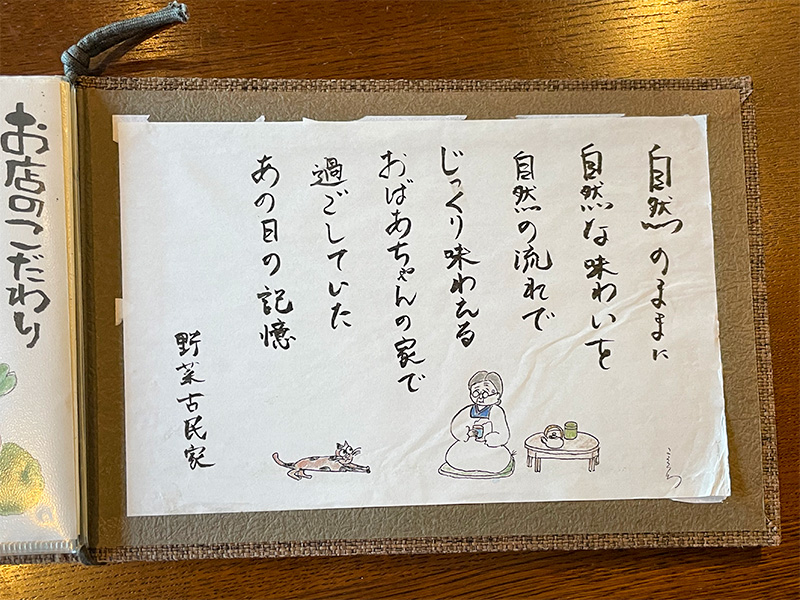 自然のままに
自然な味わいを
自然の流れで
じっくり味わえる
おばあちゃんの家で
過ごしていた
あの日の記憶
野菜古民家
お店のこだわり